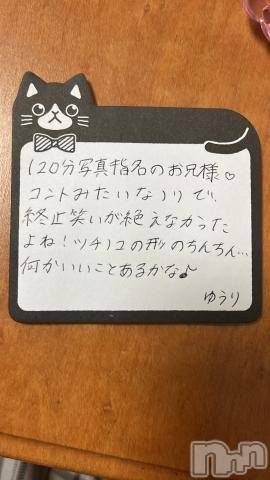 120分写真指名のお兄様♡
コントみたいなノリで、
終止笑いが絶えなかった
よね！ツチノコの形のちんちん…
何かいいことあるかな♪
ゆうり